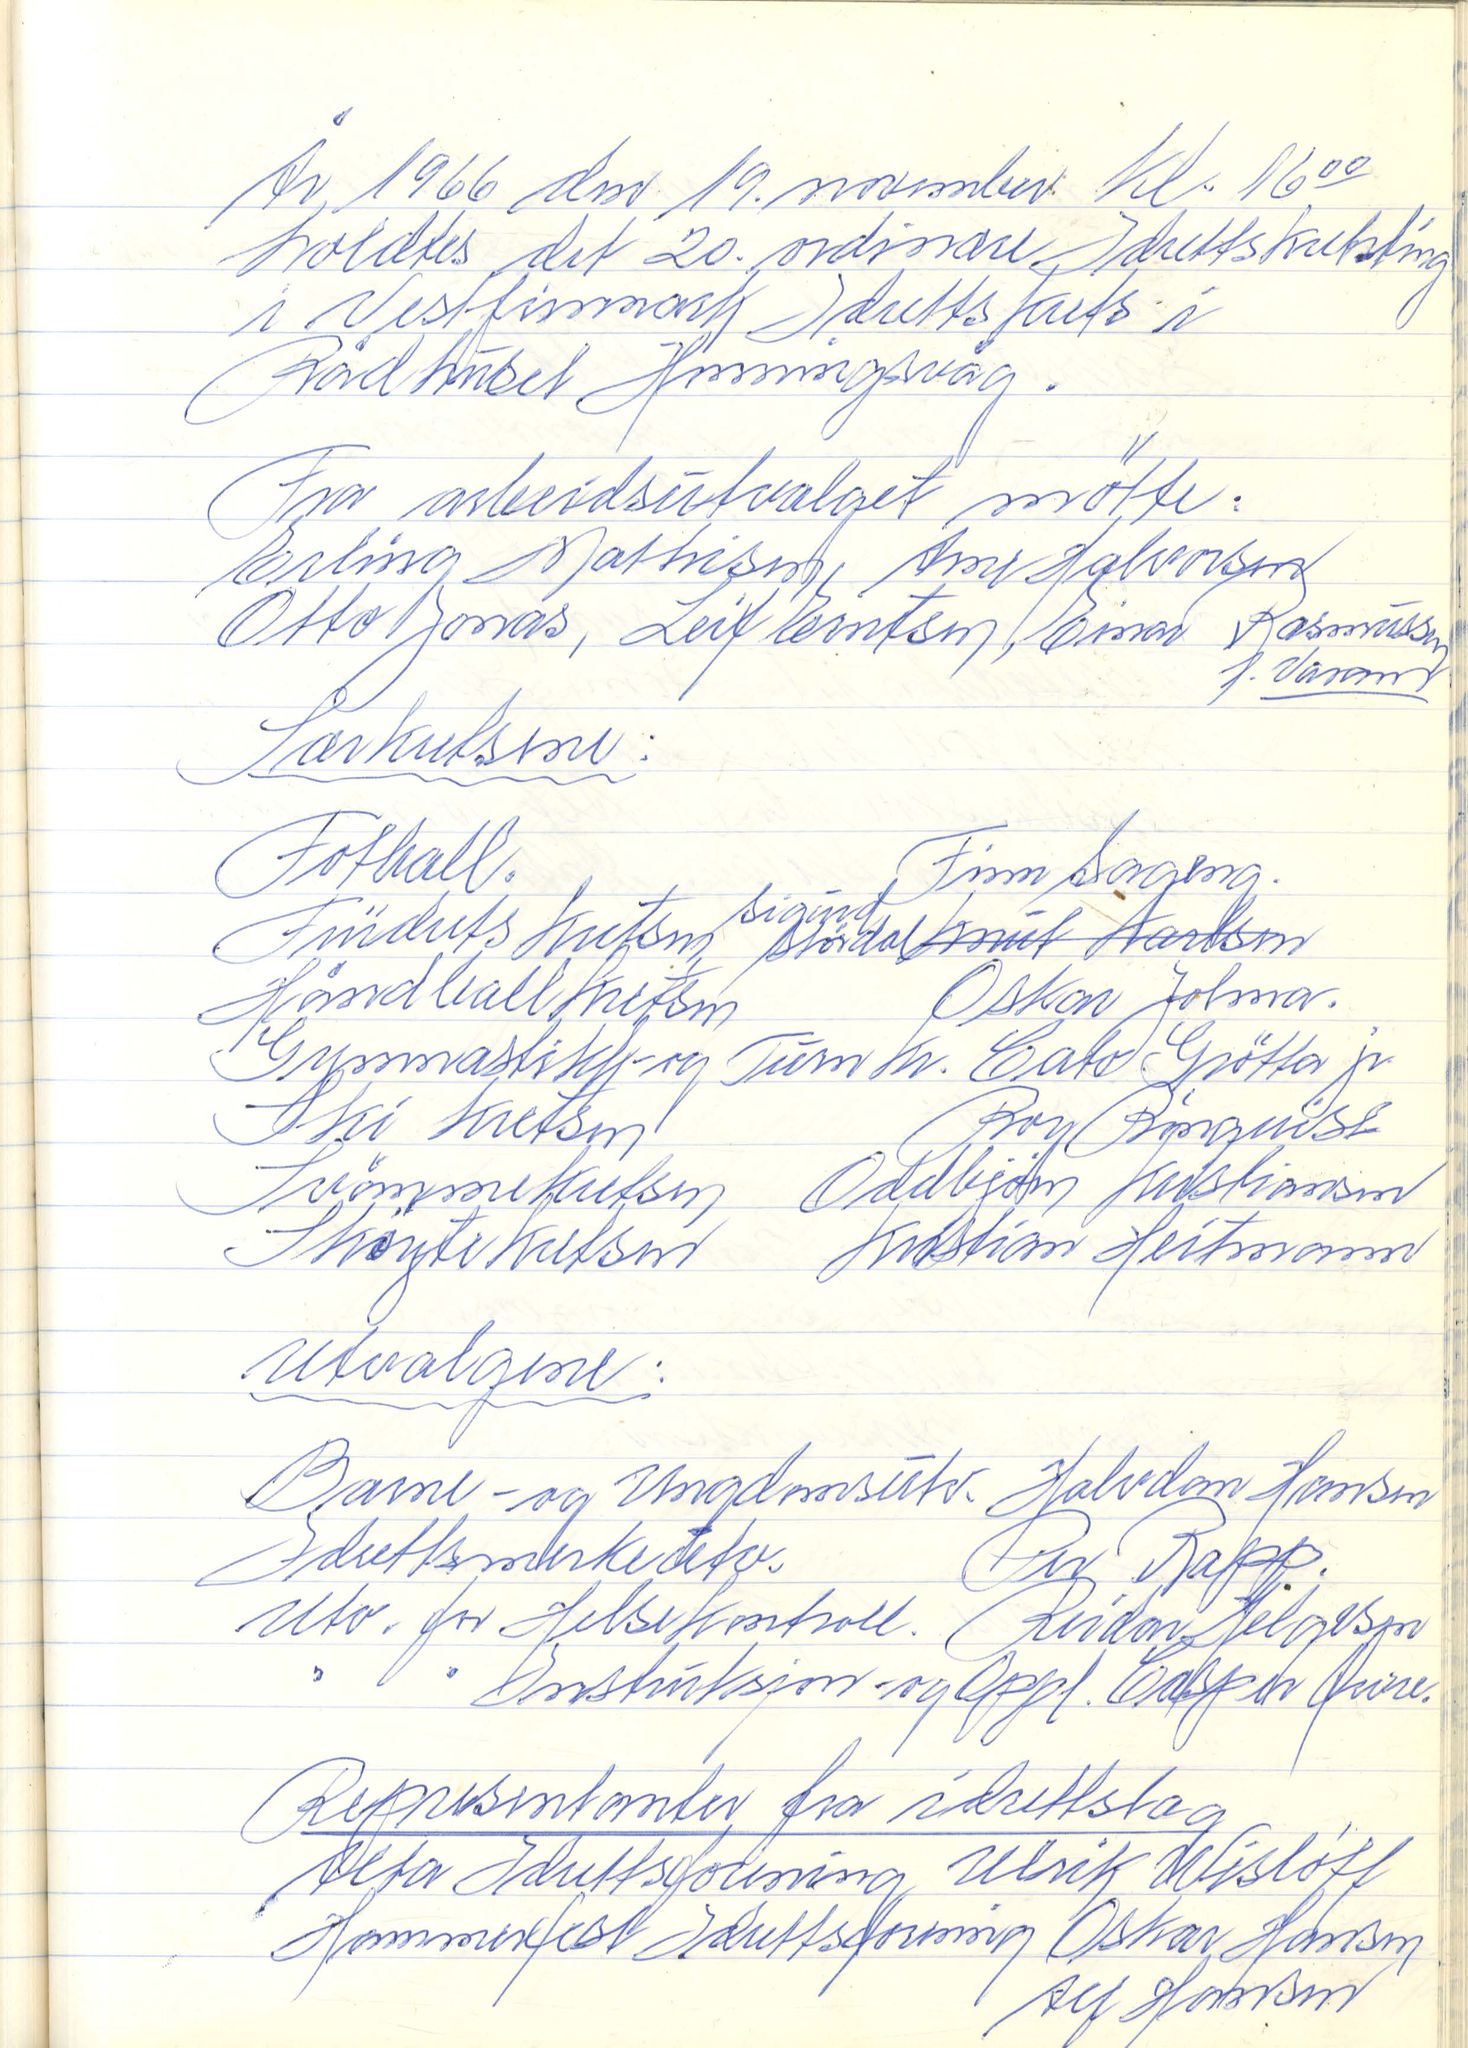 År 1966 den 19. november kl. 16⁰⁰
holdtes det 20. ordinære Idrettskretsting
i Vestfinnmark Idrettskrets i
Rådhuset Honningsvåg.
Fra arbeidsutvalget møtte:
Erling Mathisen, Arne Halvorsen
Otto Jonas, Leif Berntsen, Einar Rasmussen
f. Varam
Særkretsene:
Fotball. Finn Sageng.
Friidretts kretsen, Sigurd Stördal Knut Karlsen
Håndballkretsen Oskar Jolma.
Gymnastikk- og Turn kr. Cato Grötta jr
Ski kretsen Roy Rönquist
Svömmekretsen Oddbjörn Kristiansen
Sköytekretsen Kristian Heitmann
Utvalgene:
Barne- og Ungdomsutv. Halvdan Hansen
Idrettsmerkeutv. Per Rapp.
Utv. for Helsekontroll. Reidar Helgesen
" " Instruksjon- og Oppl. Casper
Representanter fra idrettslag
Alta Idrettsforening Ulrik Wislöff
Hammerfest Idrettsforening Oskar Hansen
Alf Hansen